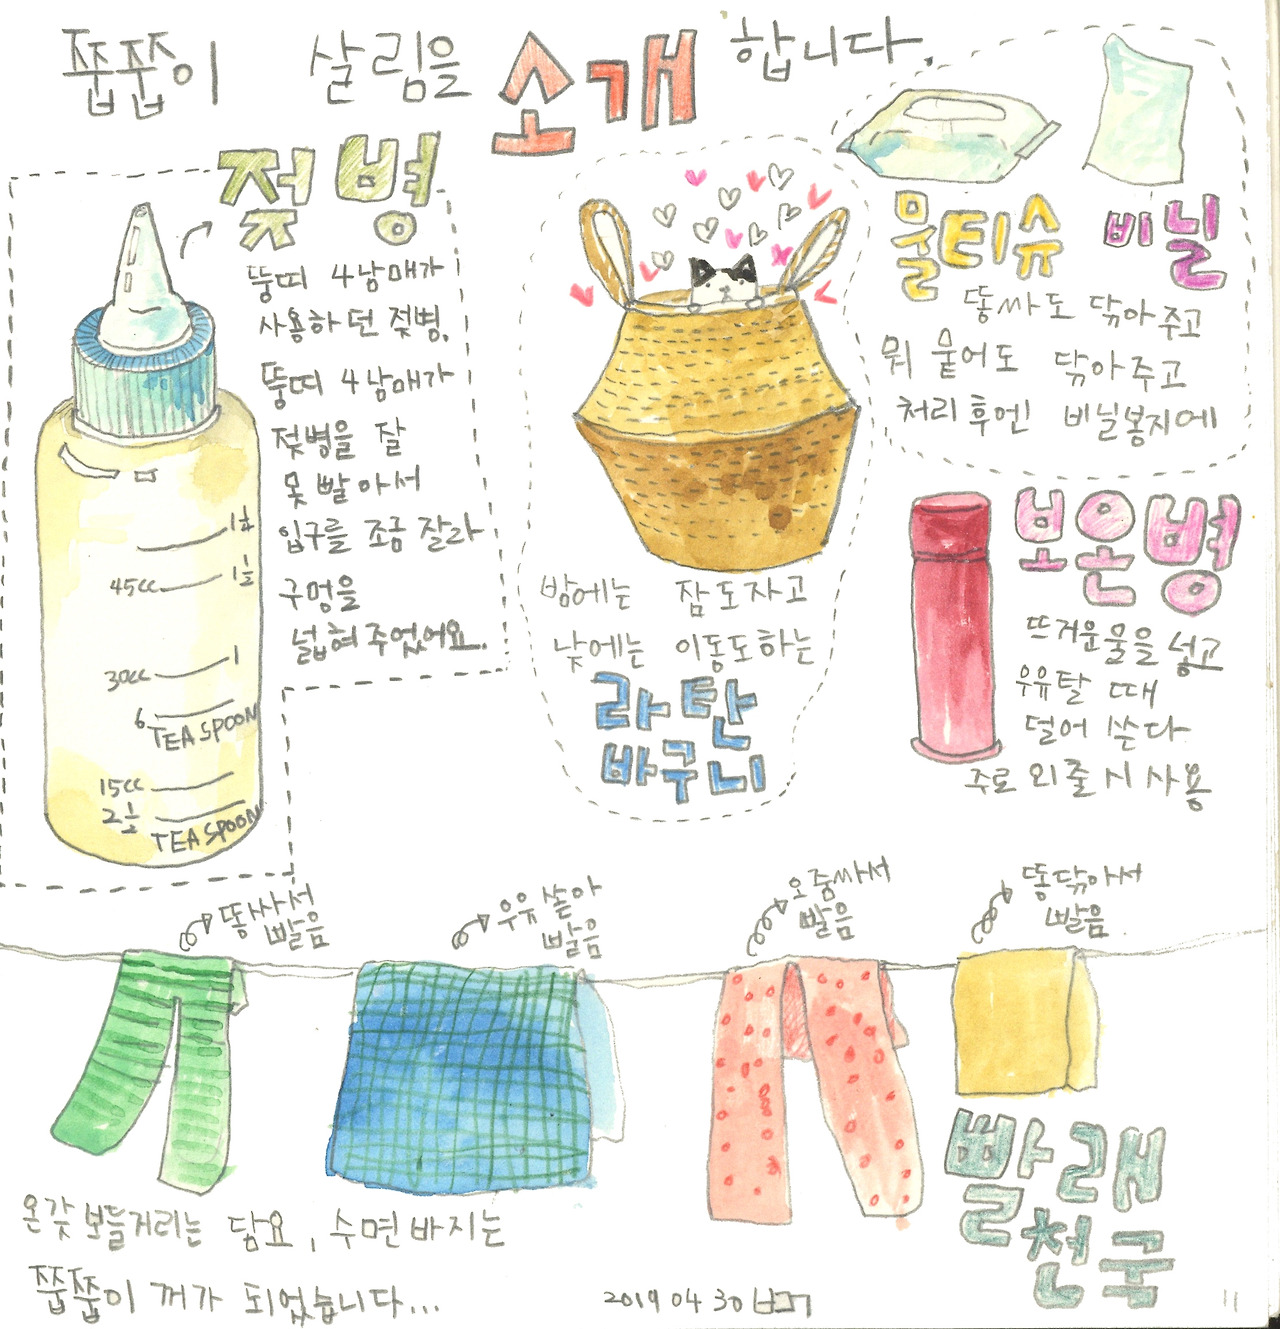 쭙쭙이 살림을 소개 합니다.
젖병
뚱띠 4남매가
사용하던 젖병.
뚱띠 4남매가
젖병을 잘
못 빨아서
입구를 조금 잘라
구멍을
넓혀주었어요.
1½
45cc
30cc 1
6 TEA SPOON
15cc
2½ TEA SPOON
밤에는 잠도자고
낮에는 이동도하는
라탄
바구니
물티슈 비닐
똥싸도 닦아주고
뭐 묻어도 닦아주고
처리후엔 비닐봉지에
보온병
뜨거운물을 넣고
우유탈 때
덜어 쓴다
주로 외출시 사용
똥싸서
빨음
우유 쏟아
빨음
오줌싸서
빨음
똥닦아서
빨음
빨래
천국
온갖 보들거리는 담요, 수면바지는
쭙쭙이 꺼가 되었습니다...
2019 04 30
11